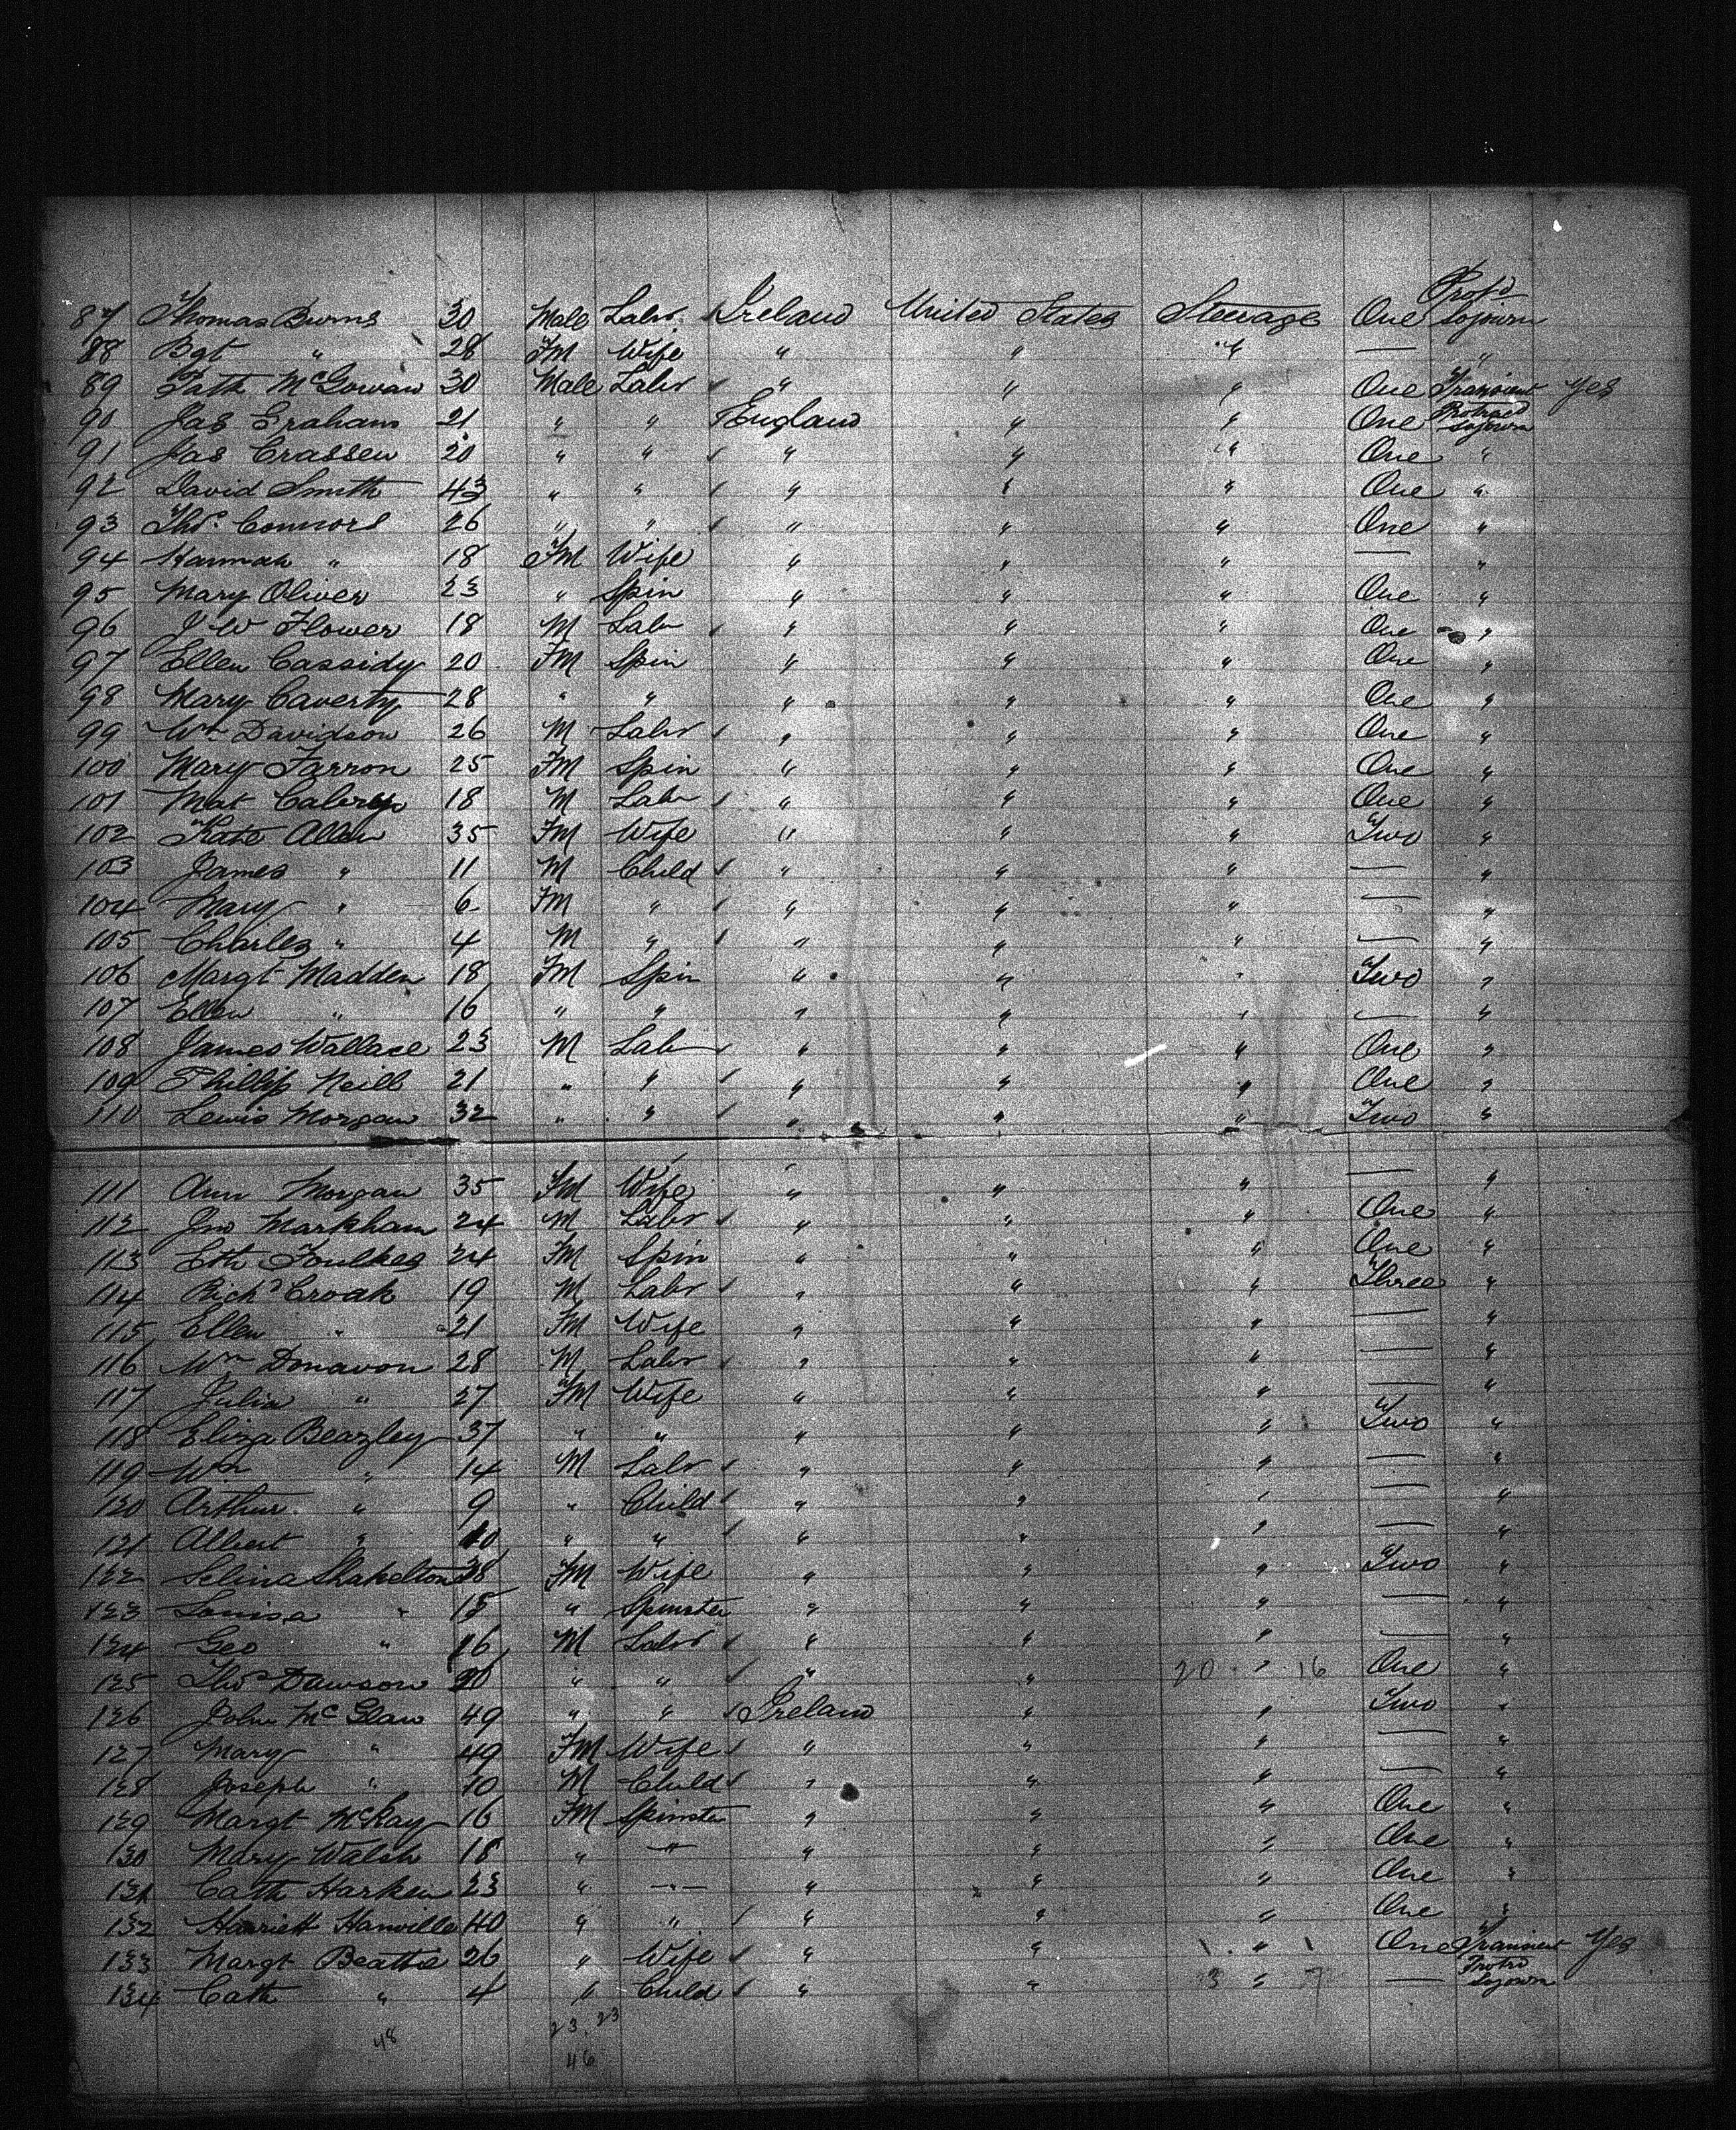 87 Thomas Burns 30 Male Labr Ireland United States Steerage One Protd Sojourn
88 Bgt " 28 FM Wife " " " — "
89 Path McGowan 30 Male Labr " " " One Transient Yes
90 Jas Graham 21 " " England " " One Protraed Sojourn
91 Jas Crassen 20 " " " " " One "
92 David Smith 43 " " " " " One "
93 Thos Connors 26 " " " " " One "
94 Hannah " 18 FM Wife " " " — "
95 Mary Oliver 23 " Spin " " " One "
96 J W Flower 18 M Labr " " " One "
97 Ellen Cassidy 20 FM Spin " " " One "
98 Mary Caverty 28 " " " " " One "
99 Wm Davidson 26 M Labr " " " One "
100 Mary Farron 25 FM Spin " " " One "
101 Mat 18 M Labr " " " One "
102 Kate Allen 35 FM Wife " " " Two "
103 James " 11 M Child " " " — "
104 Mary " 6 FM " " " " — "
105 Charles " 4 M " " " " — "
106 Margt Madden 18 FM Spin " " " Two "
107 Ellen " 16 " " " " " — "
108 James Wallace 23 M Labr " " " One "
109 Phillip Neill 21 " " " " " One "
110 Lewis Morgan 32 " " " " " Two "
111 Ann Morgan 35 FM Wife " " " — "
112 Jno Markham 24 M Labr " " " One "
113 Eth Foulkes 24 FM Spin " " " One "
114 Richd Croak 19 M Labr " " " Three "
115 Ellen " 21 FM Wife " " " — "
116 Wm Donavon 28 M Labr " " " — "
117 Julia " 27 FM Wife " " " — "
118 Eliza Beazley 37 " " " " " Two "
119 Wm " 14 M Labr " " " — "
120 Arthur " 9 " Child " " " — "
121 Albert " 10 " " " " " — "
122 Selina Shakelton 38 FM Wife " " " Two "
123 Louisa " 18 " Spinster " " " — "
124 Geo " 16 M Labr " " " — "
125 Thos Dawson 20 " " " " 20 " 16 One "
126 John McGlaw 49 " " Ireland " " Two "
127 Mary " 49 FM Wife " " " — "
128 Joseph " 10 M Child " " " — "
129 Margt McKay 16 FM Spinster " " " One "
130 Mary Walsh 18 " " " " " One "
131 Cath Harkin 23 " " " " " One "
132 Harriett Hanville 40 " " " " " One "
133 Margt Beattie 26 " Wife " " " One Transient Yes
134 Cath " 4 " Child " " 3 " 7 — Protrd Sojourn
48 23. 23
46